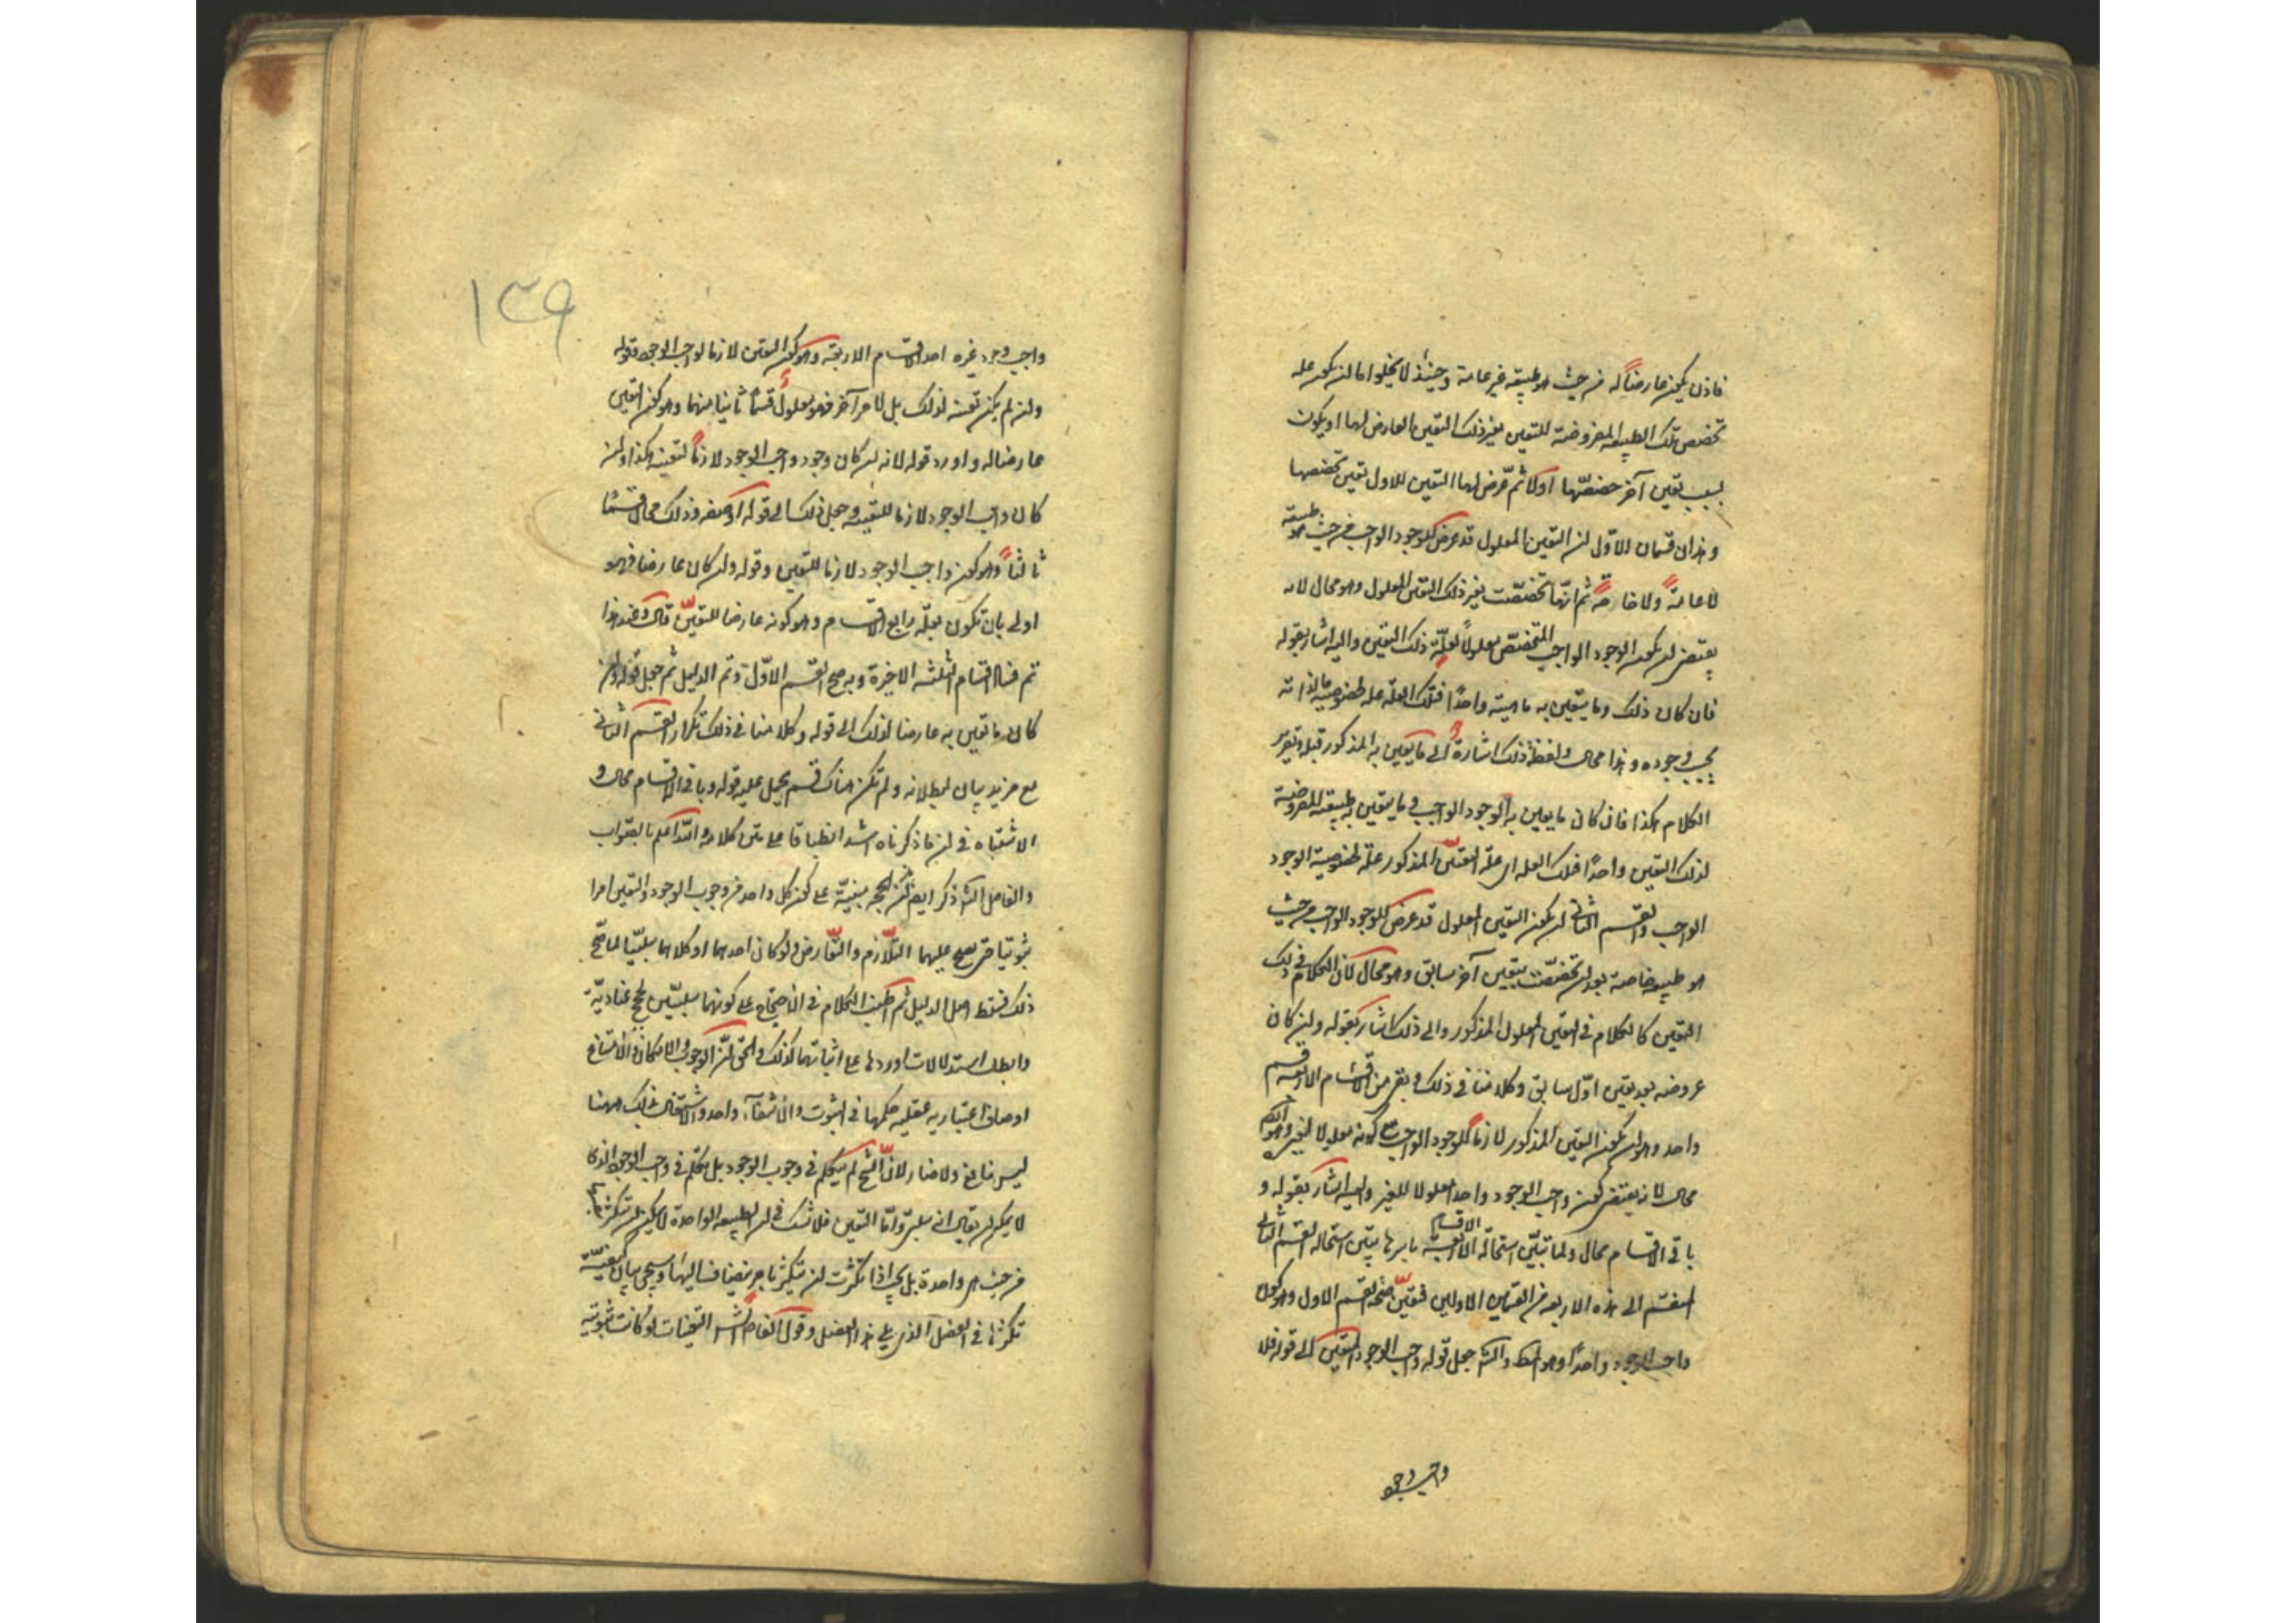 فاذن يكون عارضاً له من حيث هو طبيعة غير عامة وحينئذ لا يخلوا اما ان يكون علة
تخصص تلك الطبيعة المعروضة للتعين بغير ذلك التعين العارض لها او يكون
بسبب تعين آخر خصصها اولا ثم عرض لها التعين الاول بتعين تخصصها
وهذان قسمان الاول ان التعين المعلول قد عرض للوجود الواجب من حيث هو طبيعة
لا عامة ولا خاصة ثم انها تخصصت بغير ذلك التعين المعلول وهو محال لانه
يقتضى ان يكون الوجود الواجب المتخصص معلولا لعلة ذلك التعين واليه اشار بقوله
فان كان ذلك وما يتعين به ماهيته واحدا فتلك العلة علة لخصوصية ما لذاته
يجب وجوده وهذا محال ولفظة ذلك اشارة الى ما يتعين به المذكور قبله وتقرير
الكلام هكذا فان كان ما يعين به الوجود الواجب وما يتعين به طبيعة المعروضة
لذلك التعين واحدا فتلك العلة اى علة التعين المذكور علة لخصوصية الوجود
الواجب والقسم الثانى ان يكون التعين المعلول قد عرض للوجود الواجب من حيث
هو طبيعة خاصة بعد ان تخصصت بتعين آخر سابق وهو محال لان الكلام فى ذلك
التعين كالكلام فى التعين المعلول المذكور والى ذلك اشار بقوله وان كان
عروضه بعد تعين اول سابق وكلامنا فى ذلك وبقى من الاقسام الاربعة قسم
واحد وهو ان يكون التعين المذكور لازما للوجود الواجب مع كونه معلولا لغيره وهو
محال لانه يقتضى كون واجب الوجود واحدا معلولا للغير واليه اشار بقوله و
باقى الاقسام محال ولما تبين استحالة الاقسام الاربعة باسرها يتبين استحالة القسم الثانى
المنقسم الى هذه الاربعة من القسمين الاولين فتعين صحة القسم الاول وهو كون
واجب الوجود واحدا وهو المط والش جعل قوله واجب الوجود المتعين الى قوله فلا
واجب وجود
١٣٩
واجب وجود غيره احد الاقسام الاربعة وهو كون التعين لازما لواجب الوجود وقوله
وان لم يكن تعينه لذلك بل لامر آخر فهو معلول قسما ثانيا منهما وهو كون التعين
عارضا له واورد قوله لانه ان كان وجود واجب الوجود لازما لتعينه هكذا وان
كان واجب الوجود لازما للتعينه وجعل ذلك الى قوله او صفة وذلك محال قسما
ثالثا وهو كون واجب الوجود لازما للتعين وقوله وان كان عارضا فهو
اولى بان تكون بعلة رابع الاقسام وهو كونه عارضا للتعين قال وعند هذا
تم فساد اقسام الثلثة الاخيرة وبه صح القسم الاول وتم الدليل ثم جعل قوله وان
كان ما تعين به عارضا لذلك الى قوله وكلامنا فى ذلك تكرارا لقسم الثانى
مع مزيد بيان لبطلانه ولم تكن هناك قسم يحمل عليه قوله وباقى الاقسام محال و
الاشتباه فى ان ما ذكرناه اشد انطباقا على متن كلامه والله اعلم بالصواب
والفاضل الش ذكر ايضا ان الحجة مبنية على كون كل واحد من وجوب الوجود والتعين امرا
ثبوتيا حتى يصح عليهما التلازم والتعارض ولو كان احدهما او كلاهما سلبيا لما صح
ذلك فسقط اصل الدليل ثم اطنب الكلام فى الاحتجاج على كونهما سلبيين بحجج عنادية
وابطل استدلالات اوردها على اثباتهما كذلك والحق ان الوجوب والامكان والامتناع
اوصاف اعتبارية عقلية حكمها فى الثبوت والانتفاء واحد والاشتغال بذلك ههنا
ليس بنافع ولا ضار لان الشيخ لم يتكلم فى وجوب الوجود بل تكلم فى واجب الوجود الذى
لا يمكن ان يقال انه سلبى واما التعين فلا شك فى ان الطبيعة الواحدة لا يمكن ان تتكثر
من حيث هى واحدة بل يجب اذا تكثرت ان تتكثر بامر ينضاف اليها وسيجى بيان كيفية
تكثرها فى الفصل الذى يلى هذا الفصل وقول الفاضل الش التعينات لو كانت ثبوتية